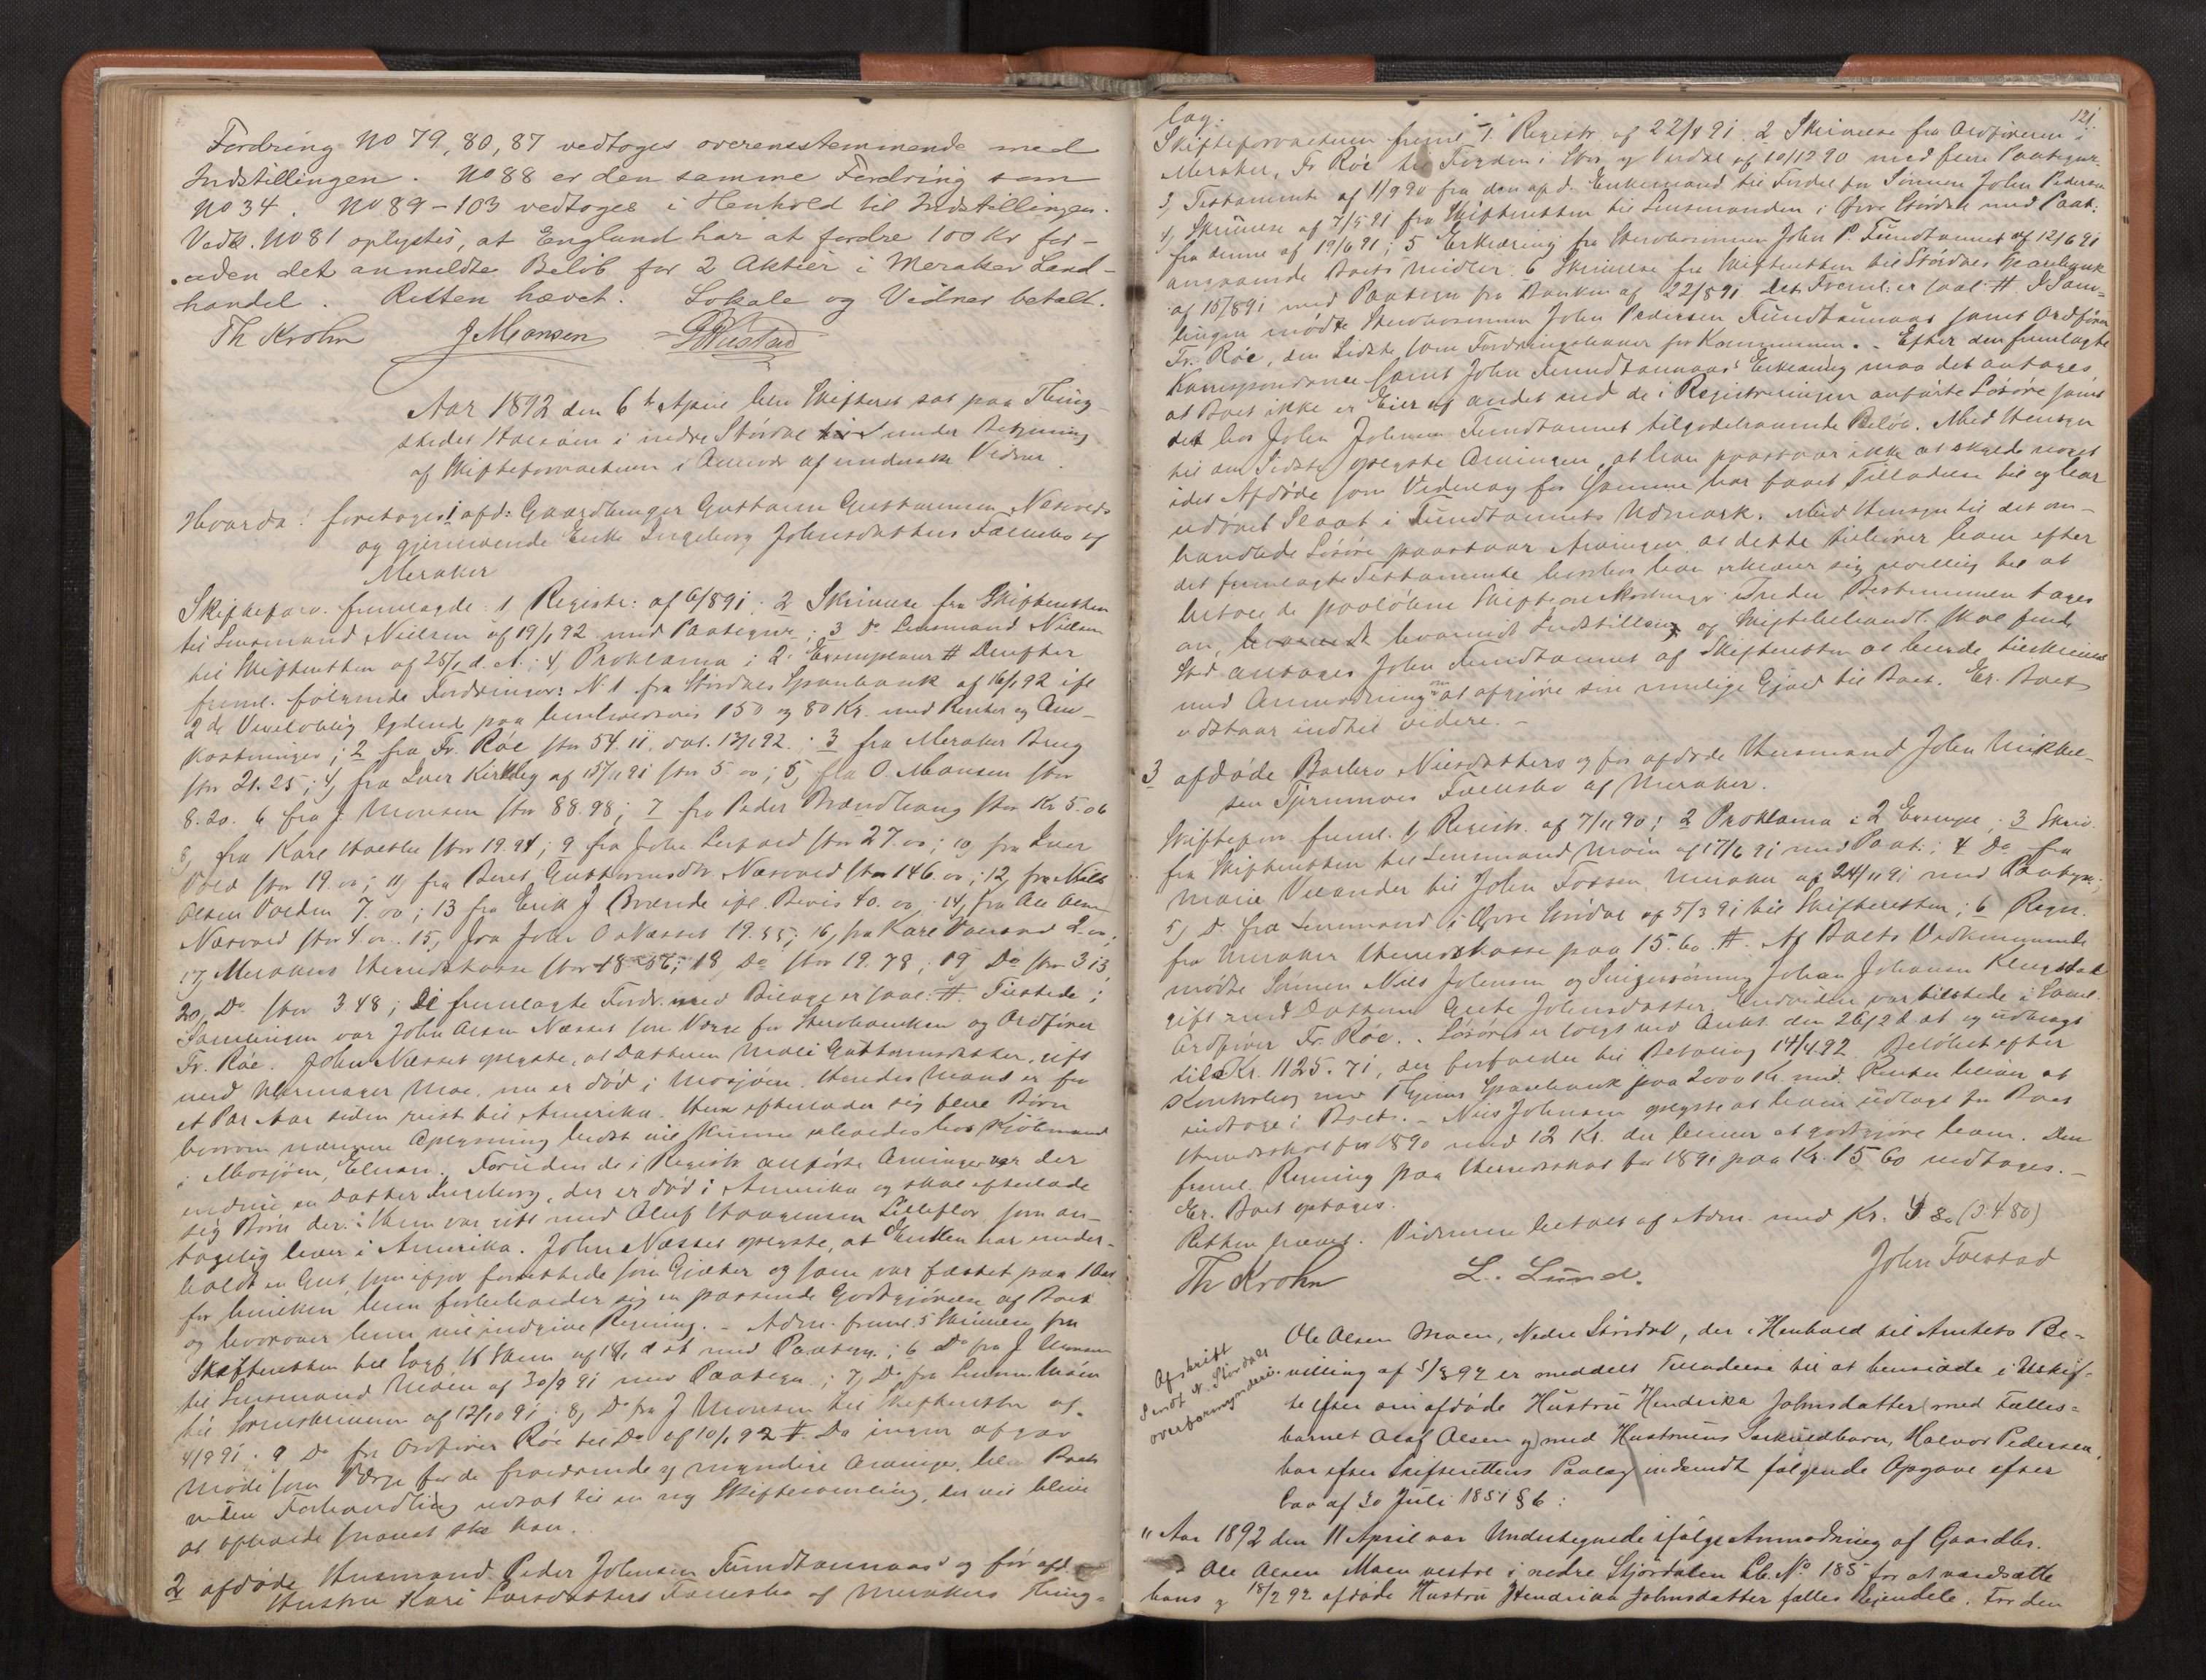 Fordring No 79, 80, 87 vedtoges overensstemmende med
Indstillingen. No 88 er den samme Fordring som
No 34. No 89-103 vedtoges i Henhold til Indstillingen.
Vedk. No 81 oplystes, at England har at fordre 100 Kr for-
uden det anmeldte Beløb for 2 Aktier i Meraker Land-
handel. Retten hævet. Lokale og Vidner betalt.
Th Krohn
Aar 1892 den 6te April blev Skifteret sat paa Thing-
stedet i nedre Stördal under Betjening
af Skifteforvalteren i Overvær af underskr. Vidner.
Hvorda: foretoges 1 afd: Gaardbruger Guttorm Guttormsen Næsvolds
og gjenlevende Enke Ingeborg Johnsdatters Fællesbo af
Meraker
Skifteforv. fremlagde 1, Registr: af 6/8 91; 2 Skrivelse fra Skifteretten
til Lensmand Nielsen af 19/1 92 med Paategn.; 3 Do Lensmand Nielsen
til Skifteretten af 25/1 d. A.; 4, Proklama i 2 Exemplarer # Derefter
freml. følgende Fordringer: N 1 fra Stördalens Sparebank af 16/1 92 ifl
2 de Vexelobligt lydende paa henholdsvis 150 og 80 Kr. med Renter og Om-
kostninger; 2 fra Fr. Röe stor 54.11, dat. 13/1 92.; 3 fra Meraker Brug
stor 21.25; 4, fra Iver Kirkeby af 15/11 91 stor 5.00; 5, fra O. Monsen stor
8.20. 6 fra J. Monsen stor 88.98; 7 fra Peder Brændhaug stor Kr 5.06
8, fra Karl stor 19.94; 9 fra John stor 27.00; 10, fra Iver
Vold stor 19.00; 11, fra Beret Guttormsdtr Næsvold stor 146.00; 12, fra Nils
Olsen Volden 7.00; 13 fra Erik J. Brænde ifl. Bevis 40.00; 14, fra Ole Olsen
Næsvold stor 4.00. 15, fra John O Næsset 19.55; 16, fra Karl 2.00;
17, Merakers Herredskasse stor 18.56; 18, Do stor 19.78; 19, Do stor 3 13,
20, Do stor 3 48; De fremlagte Fordr. med Bilage er saal: #. Tilstede i
Samlingen var John Olsen Næsset som Værge for Sterboenken og Ordfører
Fr. Röe. John Næsset oplyste, at Datteren Mali Guttormsdatter, gift
med Moe, nu er død i Mosjøen. Hendes Mand er for
et Par Aar siden reist til Amerika. Hun efterlader sig flere Børn
hvorom nærmere Oplysning bedst vil kunne erholdes hos Kjøbmand
i Mosjøen, . Foruden de i Registr. anførte Arvinger var der
endnu en Datter Ingeborg, der er død i Amerika og skal efterlade
sig Børn der. Hun var gift med Oluf Haagensen Lillefloe, som an-
tagelig lever i Amerika. John Næsset oplyste, at Enken har under-
holdt en Gut, som ifjor som Gjæter og som var fæstet paa 1 Aar
for hvilken hun forbeholder sig en passende Godtgjørelse af Boet
og hvorover hun vil indgive Regning. - Adm. freml. 5 Skrivelse fra
Skifteretten til af 18/1 d A med Paategn.; 6 Do fra J. Monsen
til Lensmand Moen af 30/9 91 med Paategn.; 7, Do fra Lensm. Moen
til af 12/10 91; 8, Do fra J Monsen til Skifteretten af
4/9 91; 9 Do fra Ordfører Röe til Do af 10/1 92 #. Da ingen afgav
Møde som Værge for de fraværende og myndige Arvinger, blev Boet
uden Forhandling udsat til en ny Skiftesamling, der vil blive
at afholde snarest ske kan.
2 afdøde Husmand Peder Johnsen Fundtaunaas' og før afd.
Hustru Kari Larsdatters Fællesbo af Merakers Thing-
121.
lag:
Skifteforvalteren freml 1. Registr. af 22/4 91. 2 Skrivelse fra Ordføreren i
Meraker, Fr Röe til Fogden i Stør og Værdal af 10/12 90 med flere Paategn.
3, Testamente af 1/9 90 fra den afd. Enkemand til Fordel for Sønnen John Pedersen
4, Skrivelse af 7/5 91 fra Skifteretten til Lensmanden i Øvre Stördal med Paat.
fra denne af 19/6 91; 5 Erklæring fra Sterbosønnen John P. Fundtaunet af 12/6 91
angaaende Boets Midler. 6 Skrivelse fra Skifteretten til Stördals Sparebank
af 15/8 91 med Paategn fra Banken af 22/8 91. Det Freml: er saal: # I Sam-
lingen mødte Sterbosønnen John Pedersen Fundtaunaas samt Ordfører
Fr. Röe, den Sidste som Fordringshaver for Kommunen. - Efter den fremlagte
Korrespondance samt John Fundtaunaas' Erklæring maa det antages
at Boet ikke er Eier af andet end de i Registreringen anførte Løsøre samt
det hos John Johnsen Fundtaunet tilgodehavende Beløb. Med Hensyn
til den Sidste oplyste Arvingen, at han paastaar ikke at skylde noget
idet Afdøde som Vederlag for Samme har faaet Tilladelse til og har
udøvet i Fundtaunets Udmark. Med Hensyn til det om-
handlede Løsøre paastaar Arvingen at dette tilhører ham efter
det fremlagte Testamente hvorhos han erklærer sig villig til at
betale de paaløbne Skifteomkostninger. Inden Bestemmelse tages
om, hvorvidt Indstilling og Skiftebehandl. skal finde
Sted antages John Fundtaunet af Skifteretten at burde tilskrives
med Anmodning om at afgjøre sin mulige Gjæld til Boet. Er. Boet
udstaar indtil videre. -
3 afdøde Barbro Nilsdatters og før afdøde Husmand John Mikkel-
sen Tjernmoes Fællesbo af Meraker.
Skifteforv. freml. 1, Registr. af 7/11 90; 2 Proklama i 2 Exempl.; 3 Skriv.
fra Skifteretten til Lensmand Moen af 17/6 91 med Paat.; 4 Do fra
Marie til John Fossen, Meraker af 24/11 91 med Paategn.;
5, Do fra Lensmand i Øvre Stördal af 5/3 91 til Skifteretten; 6 Regn.
fra Meraker Herredskasse paa 15.60. #. Af Boets Vedkommende
mødte Sønnen Nils Johnsen og Svigersønnen Johan Johansen
gift med Datteren Grete Johnsdatter. Endvidere var tilstede i Saml.
Ordfører Fr. Röe. - Løsøret er solgt ved Aukt. den 26/2 d. A. og udbragt
til Kr. 1125.71, der forfalder til Betaling 14/4 92. Beløbet efter
Kontrabog med Sparebank paa 2000 Kr. med Renter bliver at
indtage i Boet. - Nils Johnsen oplyste at have udlagt for Boet
Herredsskat for 1890 med 12 Kr. der bliver at godtgjøre ham. Den
freml. Regning paa Herredsskat for 1891 paa Kr. 15 60 vedtages. -
Er. Boet optages.
Retten hævet. Vidnerne betalt af Adm. med Kr. 4 80 (: 4 80)
Th Krohn L. Lund. John Folstad
Afskrift
sendt N. Stördals
overformynderi.
Ole Olsen Moen, Nedre Stördal, der i Henhold til Amtets Be-
villing af 5/3 92 er meddelt Tilladelse til at hensidde i Uskif-
te efter sin afdøde Hustru Hendrika Johnsdatter med Fælles-
barnet Olaf Olsen og med Hustruens Særkuldbarn, Halvor Pedersen,
har efter Skifterettens Paalæg indsendt følgende Opgave efter
Lov af 30 Juli 1851 § 6:
" Aar 1892 den 11 April var Undertegnede ifølge Anmodning af Gaardbr.
Ole Olsen Moen vestre i nedre Stjørdalen Lb. No 185 for at værdsætte
hans og 18/2 92 afdøde Hustru Hendrika Johnsdatter fælles Eiendele. For den